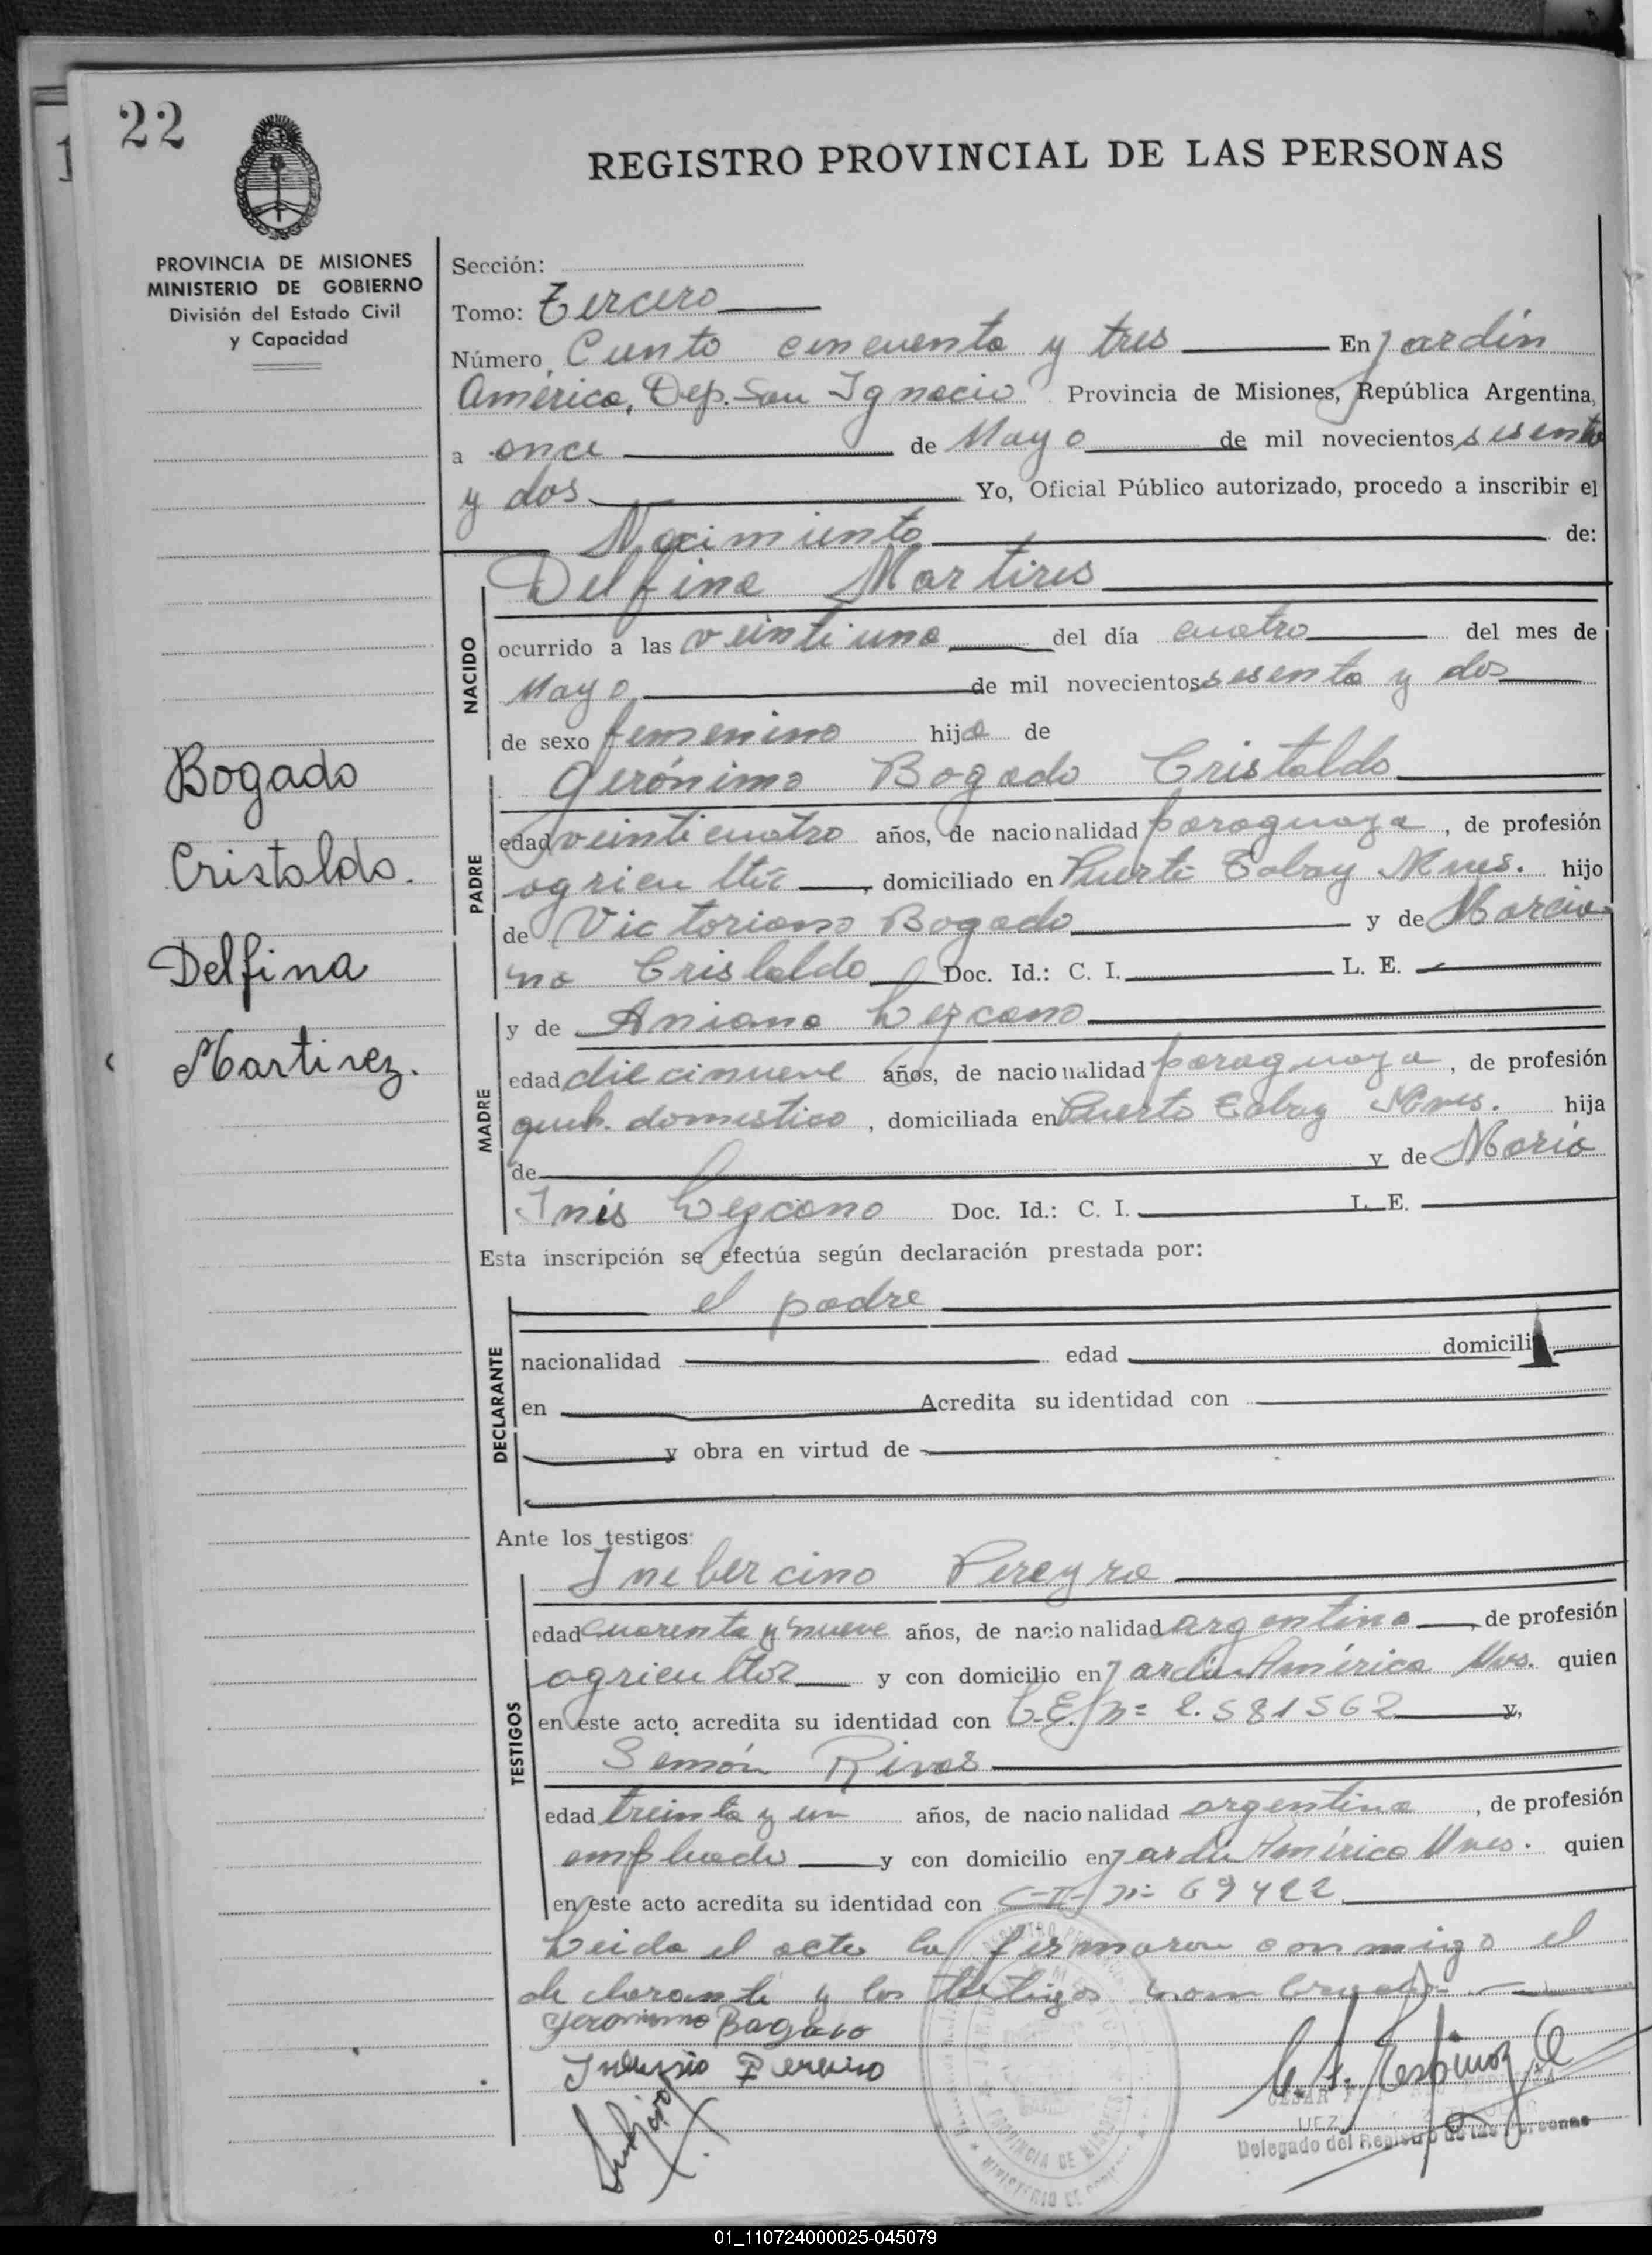 22
REGISTRO PROVINCIAL DE LAS PERSONAS
PROVINCIA DE MISIONES
MINISTERIO DE GOBIERNO
División del Estado Civil
y Capacidad
Sección:
Tomo: Tercero
Número Ciento cincuenta y tres En Jardín
América, Dep. San Ignacio Provincia de Misiones, República Argentina,
a once de Mayo de mil novecientos sesenta
y dos Yo, Oficial Público autorizado, procedo a inscribir el
Nacimiento de:
Delfina Martires
NACIDO
ocurrido a las veintiuna del día cuatro del mes de
Mayo de mil novecientos sesenta y dos
de sexo femenino hija de
Bogado
Cristaldo.
Delfina
Martirez.
Gerónimo Bogado Cristaldo
PADRE
edad veinticuatro años, de nacionalidad paraguaya, de profesión
agricultor, domiciliado en Puerto Mnes. hijo
de Victoriano Bogado y de Marcia-
na Cristaldo Doc. Id.: C. I. L. E.
y de Aniana Lezcano
MADRE
edad diecinueve años, de nacionalidad paraguaya, de profesión
queh. domestico, domiciliada en Puerto Mnes. hija
de y de María
Inés Lezcano Doc. Id.: C. I. L. E.
Esta inscripción se efectúa según declaración prestada por:
el padre
DECLARANTE
nacionalidad edad domicili
en Acredita su identidad con
y obra en virtud de
Ante los testigos:
Pereyra
TESTIGOS
edad cuarenta y nueve años, de nacionalidad argentina, de profesión
agricultor y con domicilio en Jardín América Mns. quien
en este acto acredita su identidad con L.E. nº 2.581562 y,
Simón Rivas
edad treinta y un años, de nacionalidad argentina, de profesión
empleado y con domicilio en Jardín América Mnes. quien
en este acto acredita su identidad con C-I- nº 69422
Leida el acta la firmaron conmigo el
declarante y los testigos nombrados
Geronimo Bogado
C. F. Espinoza
CESAR
JUEZ
Delegado del Registro de las Personas
PROVINCIA DE MISIONES
MINISTERIO DE
01_110724000025-045079